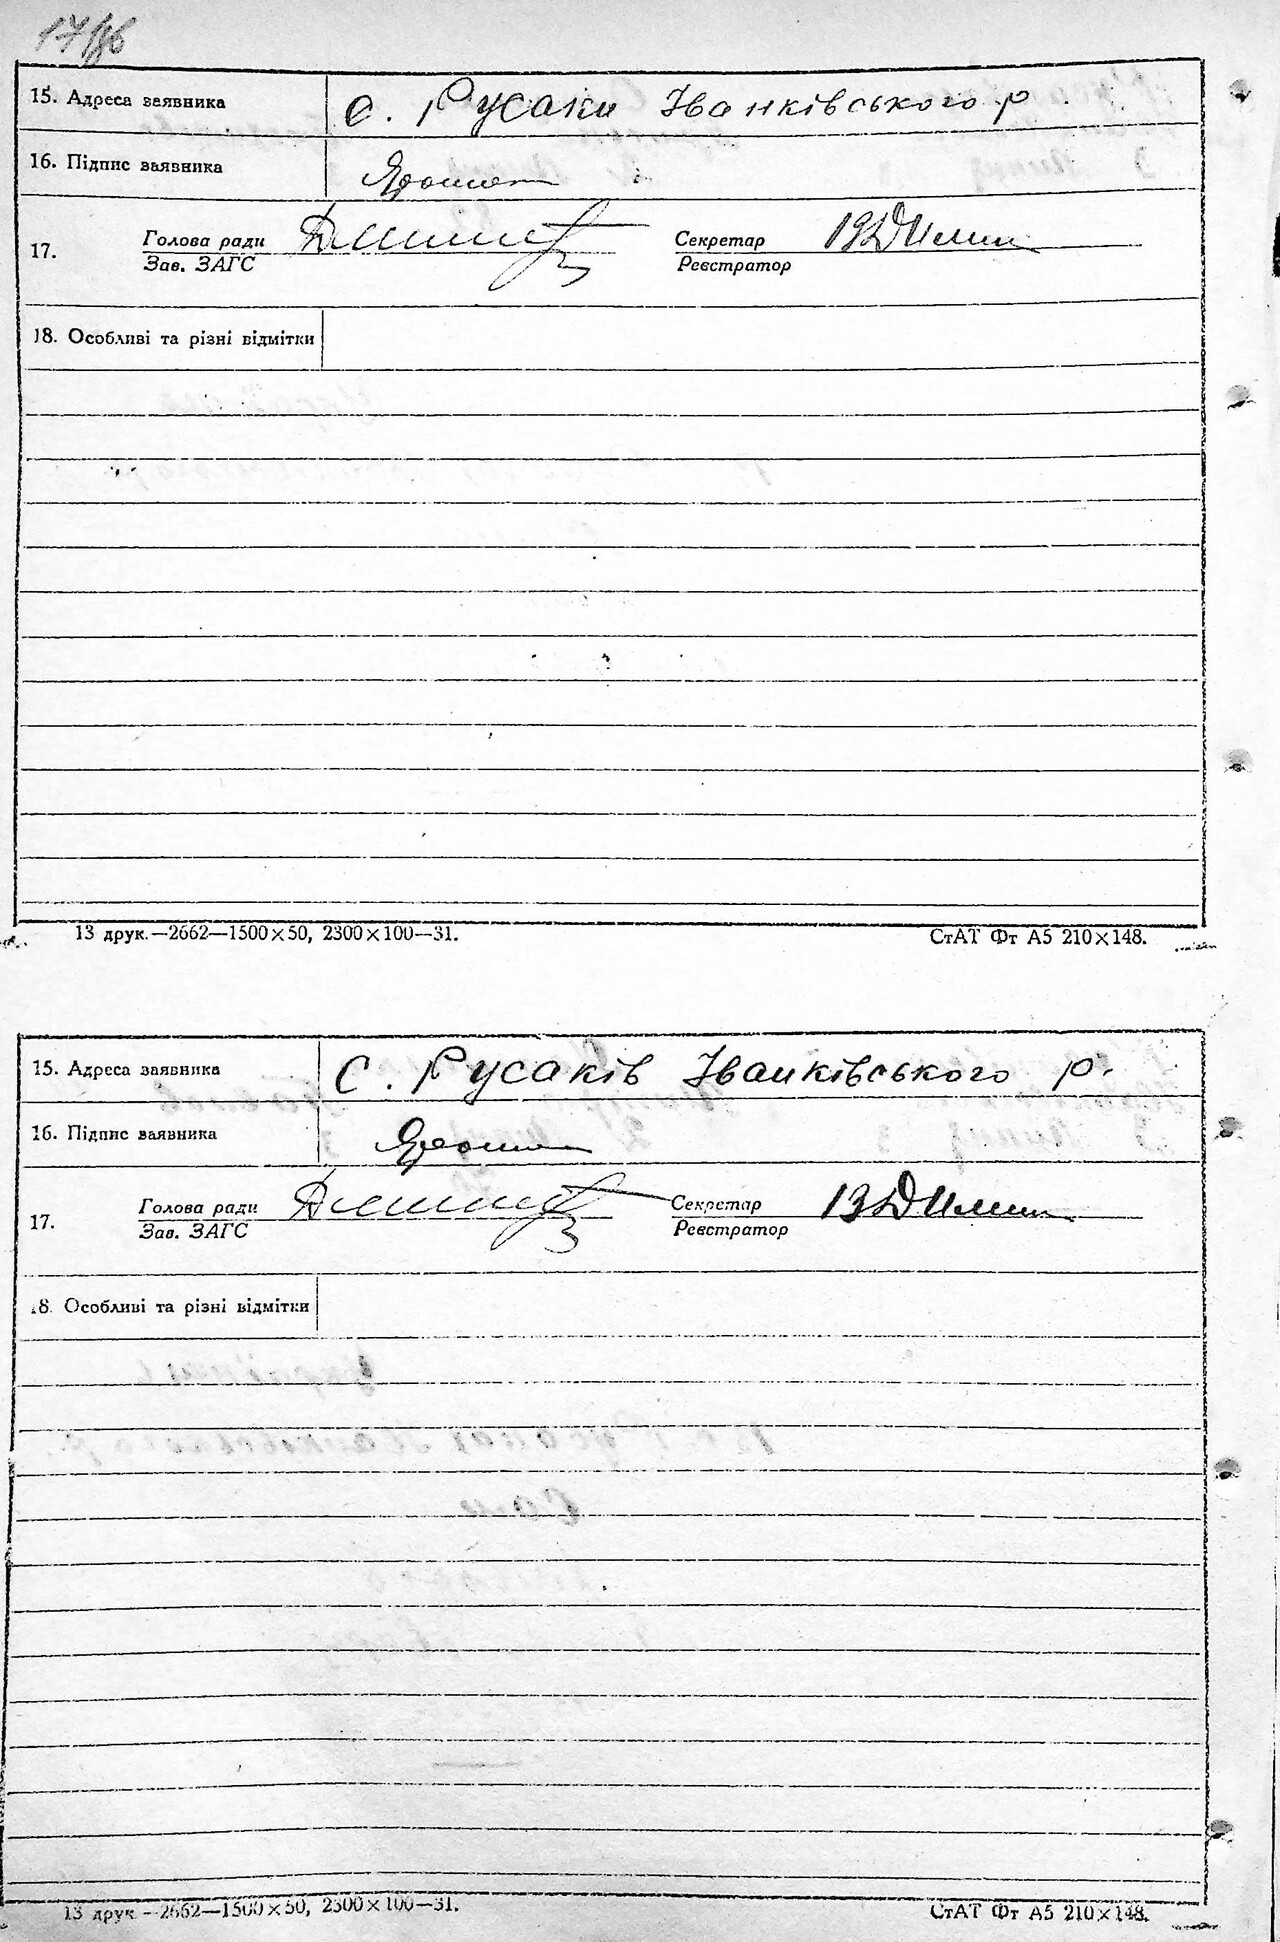 15. Адреса заявника с. Русаки Іванківського р
16. Підпис заявника
17. Голова ради Секретар
Зав. ЗАГС Реєстратор
18. Особливі та різні відмітки
13 друк.—2662—1500×50, 2300×100—31. СтАТ Фт А5 210×148.
15. Адреса заявника с. Русаків Іванківського р.
16. Підпис заявника
17. Голова ради Секретар
Зав. ЗАГС Реєстратор
18. Особливі та різні відмітки
13 друк.—2662—1500×50, 2300×100—31. СтАТ Фт А5 210×148.